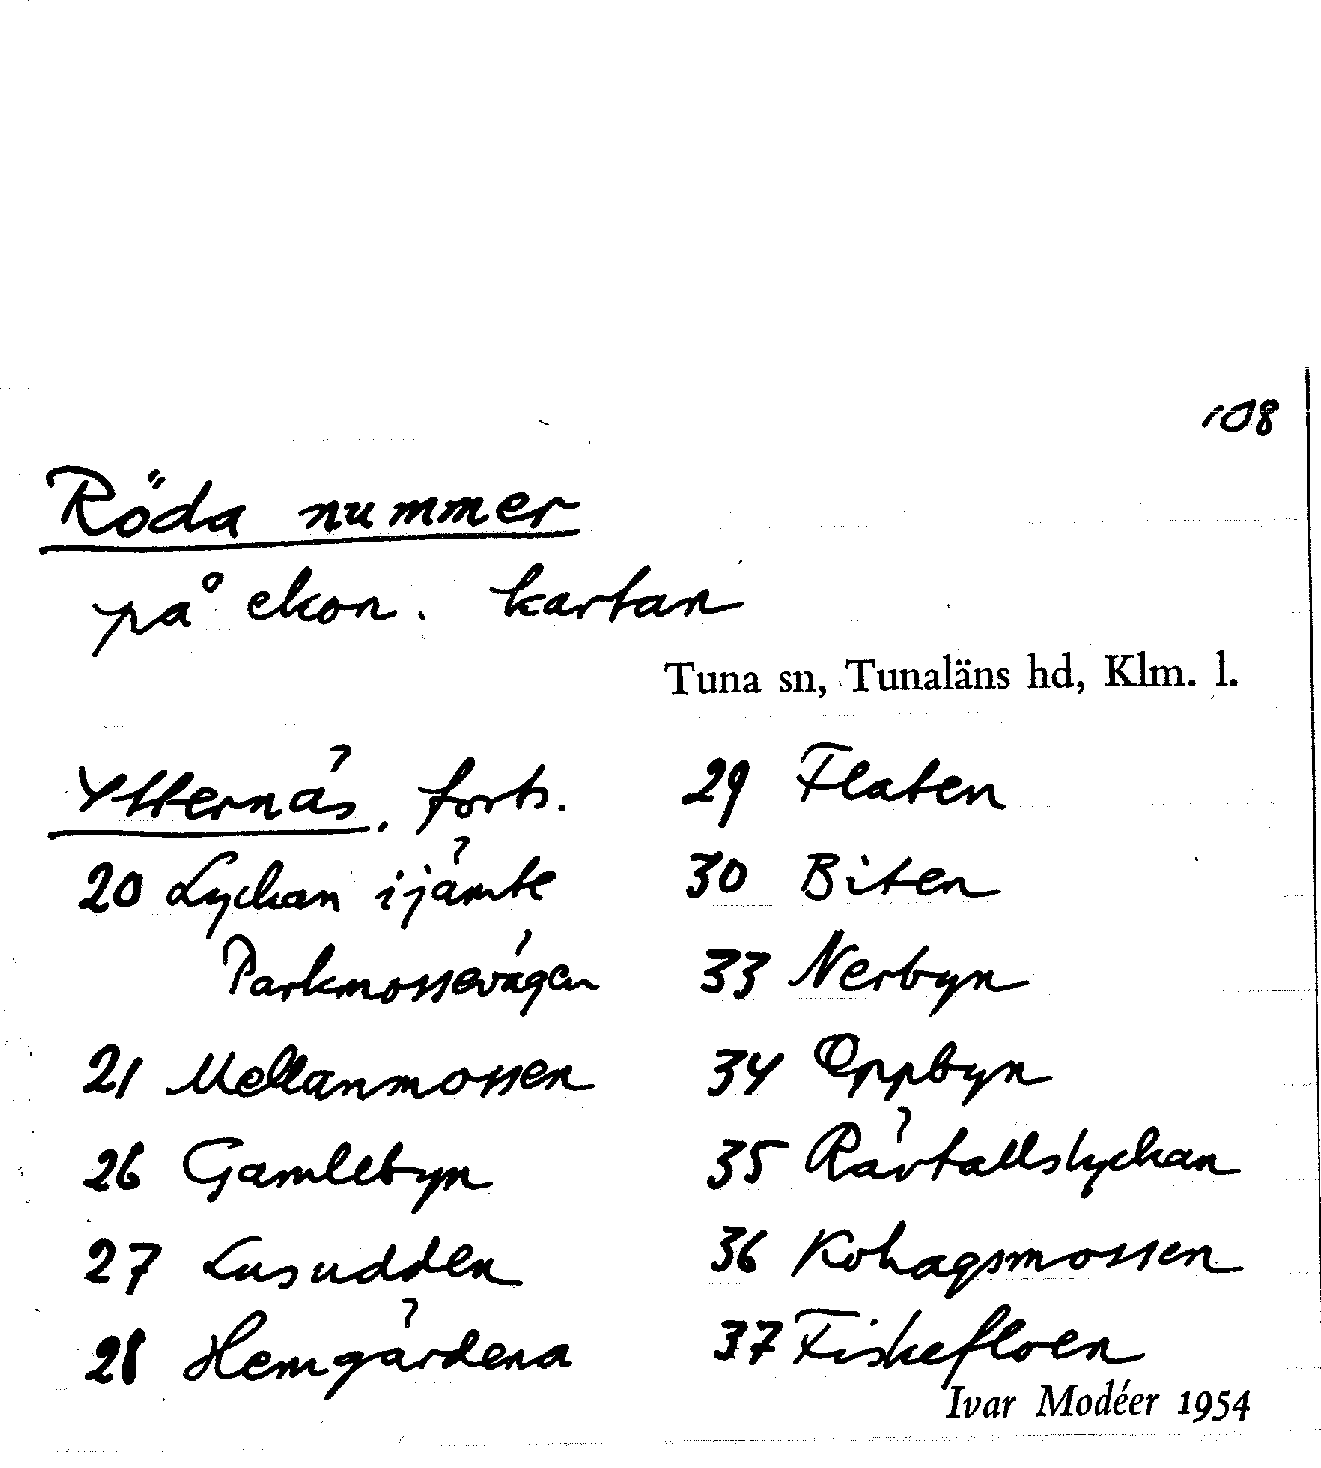 108
Röda nummer
på ekon. kartan
Tuna sn, Tunaläns hd, Klm. l.
Ytternäs, forts.
20 Lyckan i jämte
Parkmossevägen
21 Mellanmossen
26 Gamlebyn
27 Lusudden
28 Hemgärdena
29 Flaten
30 Biten
33 Nerbyn
34 Oppbyn
35 Rävtallslyckan
36 Kohagsmossen
37 Fiskefloen
Ivar Modéer 1954